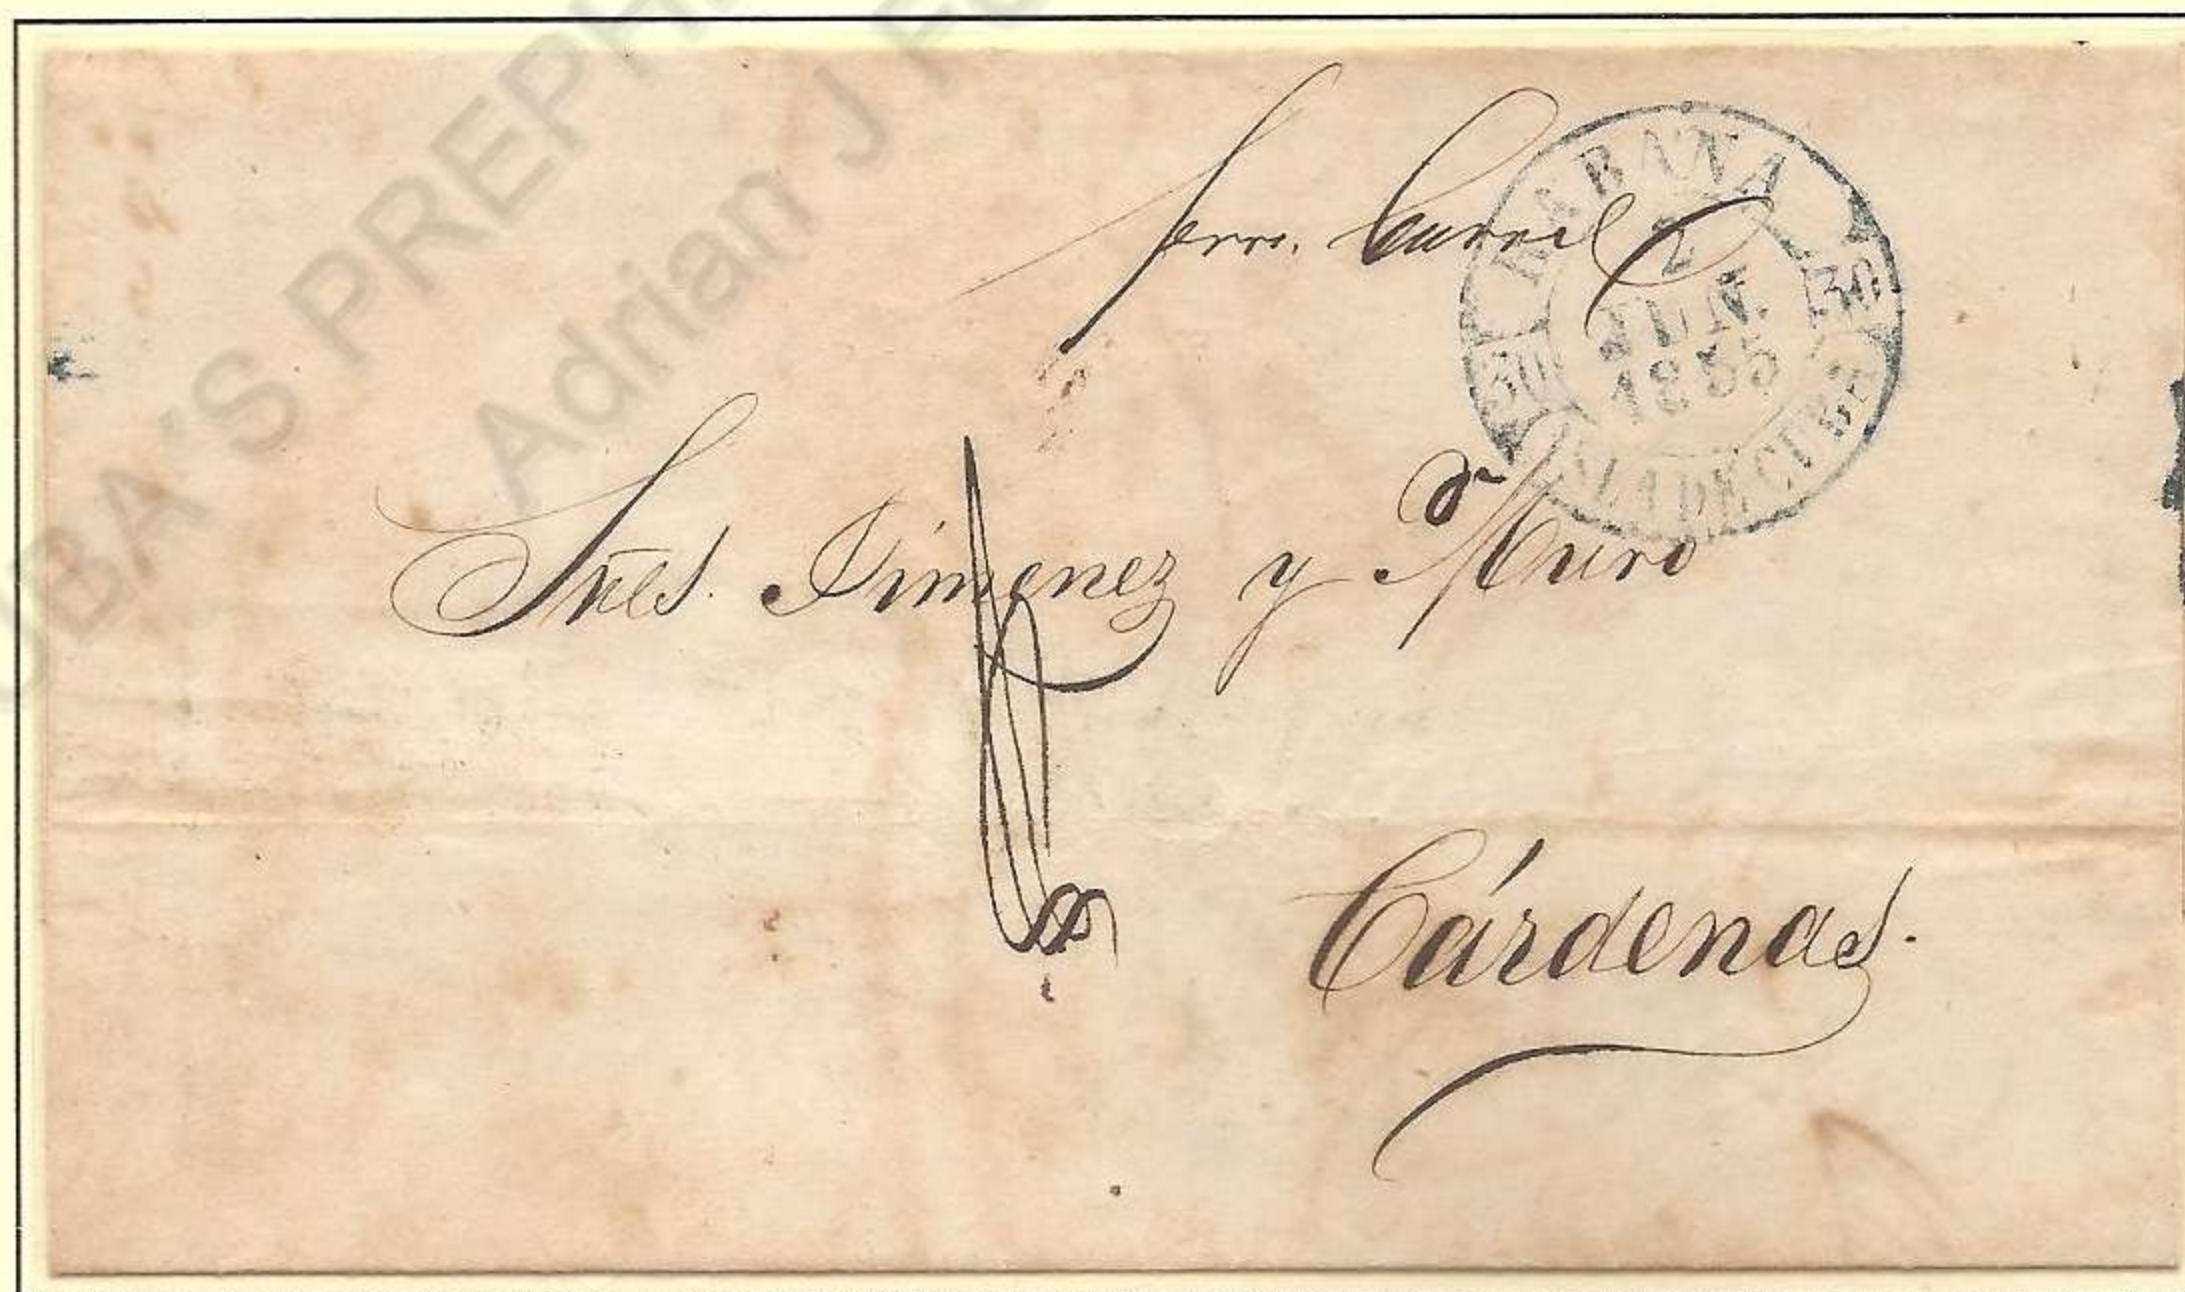 CUBA'S PREPHI
Adrian J F
Ferro. Carril
HABANA
2
JUN.
1855
30
30
ISLA DE CUBA
Sñes. Jimenez y Muro
Cárdenas.